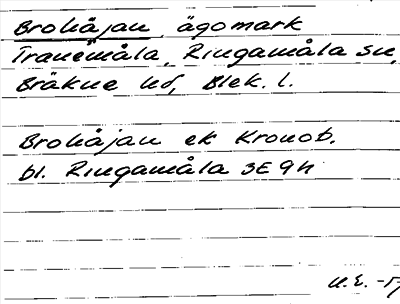 Brohåjan, ägomark
Tranemåla, Ringamåla sn,
Bräkne hd, Blek. l.
Brohåjan ek Kronob.
bl. Ringamåla 3E9h